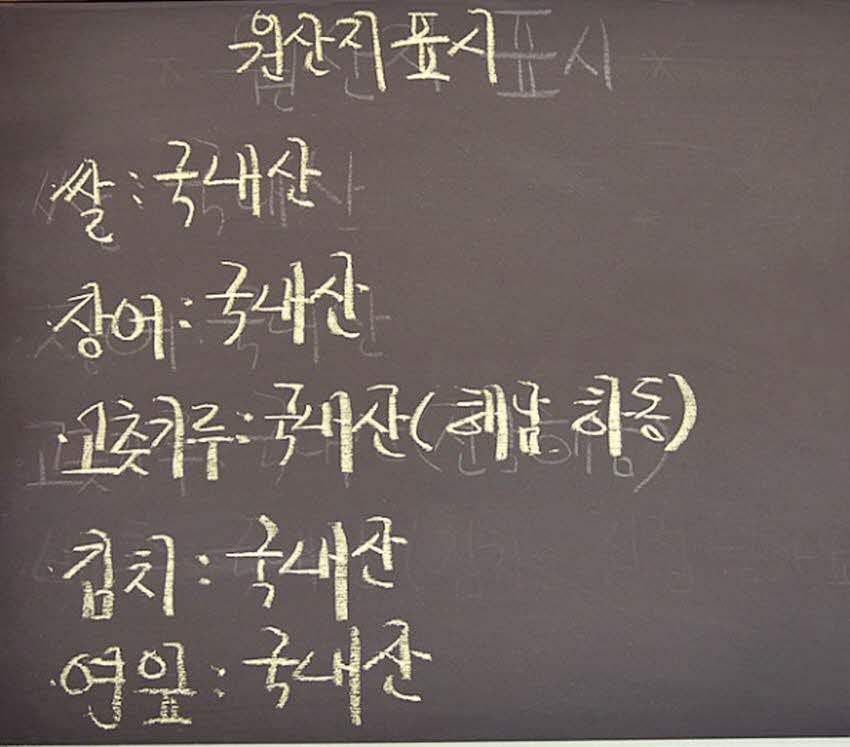 원산지 표시
·쌀 : 국내산
·장어 : 국내산
·고춧가루 : 국내산 (해남. 하동)
·김치 : 국내산
·연잎 : 국내산